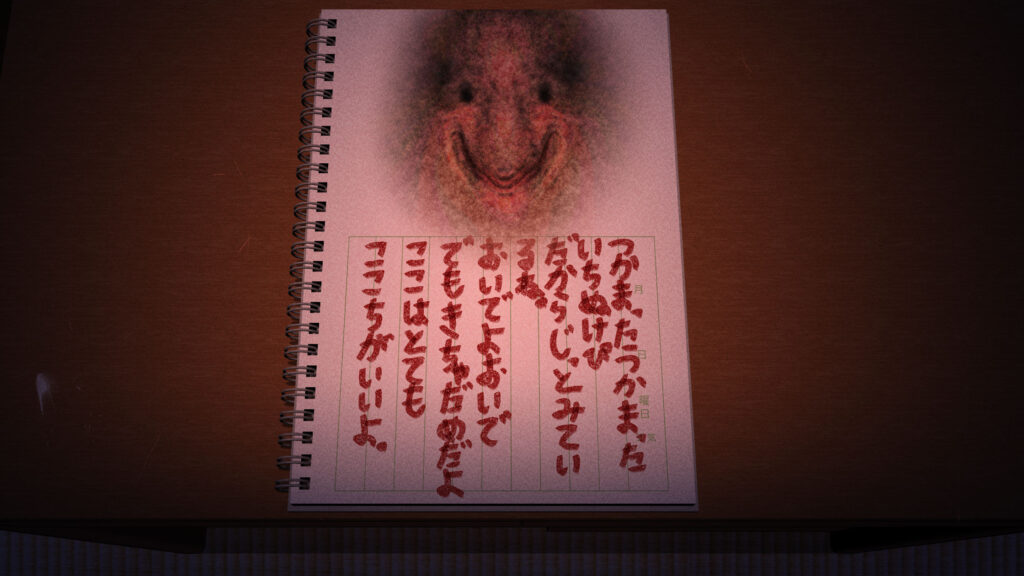 つかまったつかまった
いちぬけぴ
だからじっとみてい
るね。
おいでよおいで
でもきちゃだめだよ
ここはとても
ここちがいいよ。
月 日 曜日